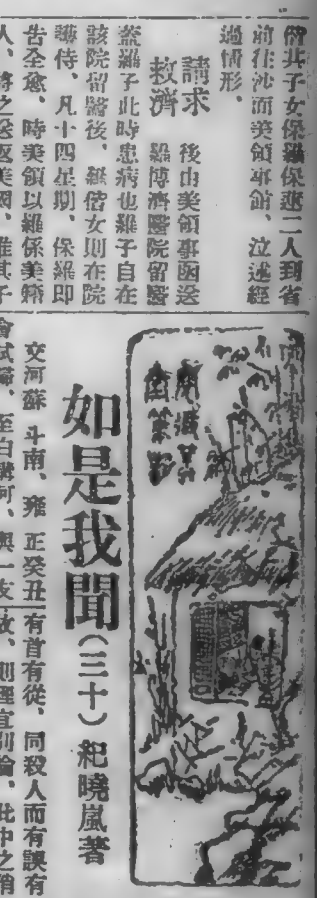 偕其子女保羅保連二人到省
前往沙面美領事館、泣述經
過情形、
請求
救濟
後由美領事函送
羅博濟醫院留醫
蓋羅子此時患病也羅子自在
該院留醫後、羅偕女則在院
護侍、凡十四星期、保羅即
告全愈、時美領以羅係美籍
人、將之送返美國、惟其子
如是我聞(三十)紀曉嵐著
交河蘇斗南、雍正癸丑
會試歸、至白溝河、與一友
有首有從、同殺人而有誤有
故、則經宜別論、此中之稍